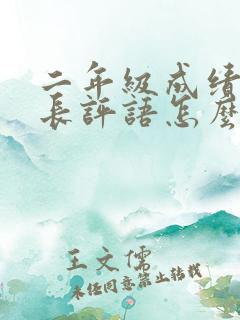 二年級成績
長評語怎麼
王文儒
未經同意禁止转载